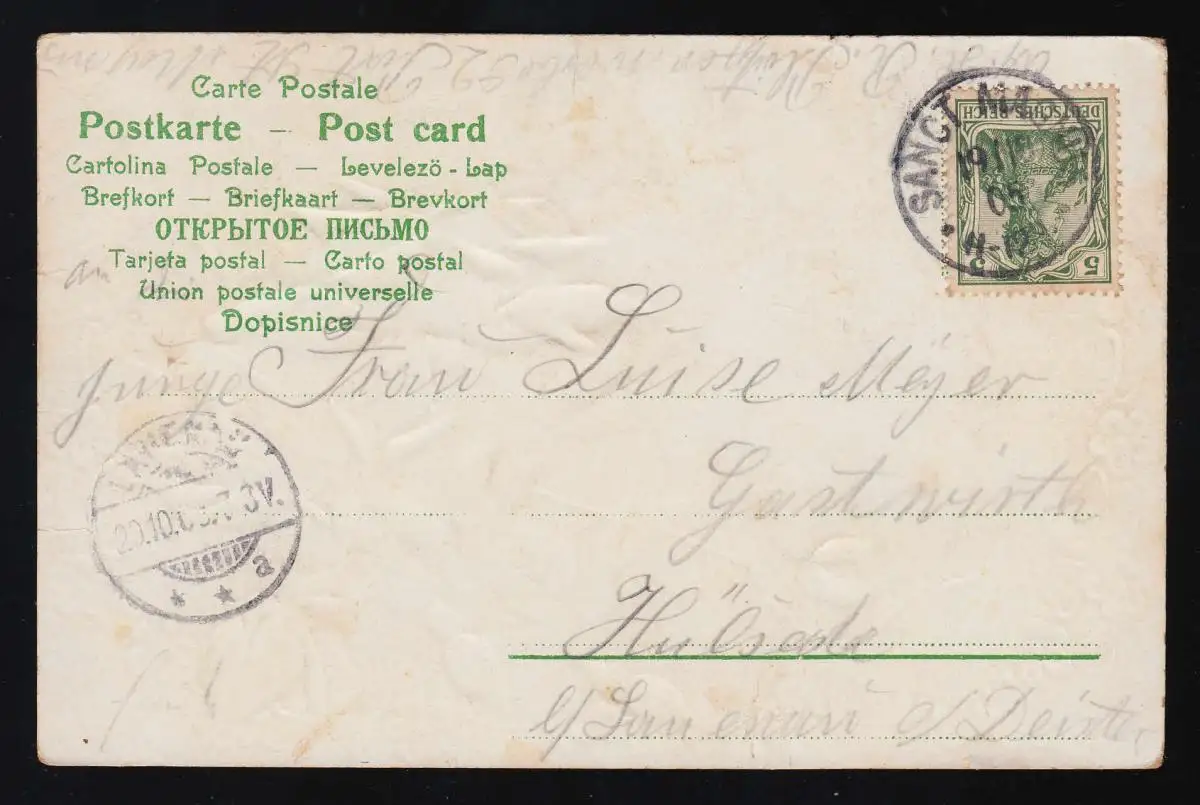 Carte Postale
Postkarte – Post card
Cartolina Postale — Levelezö - Lap
Brefkort — Briefkaart — Brevkort
ОТКРЫТОЕ ПИСЬМО
Tarjeta postal — Carto postal
Union postale universelle
Dopisnice
DEUTSCHES REICH
5 5
SANCT
19
11-12
an
junge Frau Luise Meyer
Gastwirth
Hülsede
b/ Lauenau a/ Deister
LAUENAU
20.10.0 7-8V.
* * a